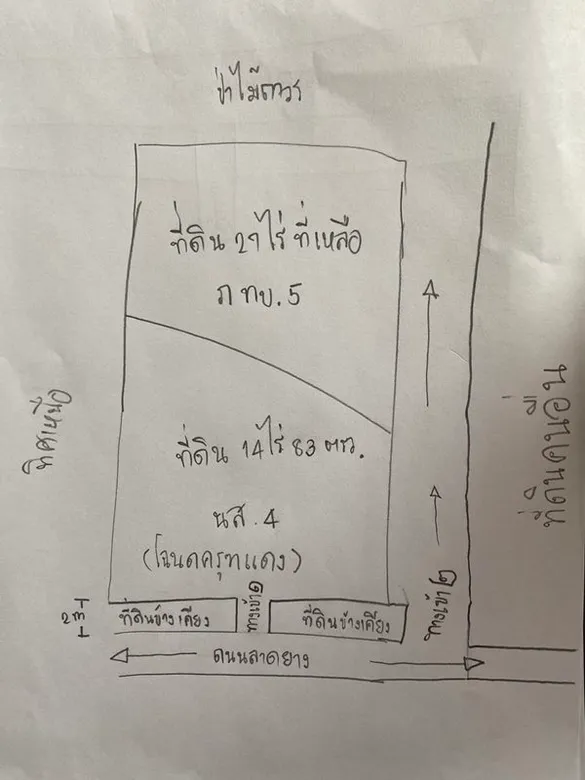 ป่าไม้ถาวร
ที่ดิน 21 ไร่ ที่เหลือ
ภ ทบ. 5
ทิศเหนือ
ที่ดินคนอื่น
ที่ดิน 14 ไร่ 83 ตรว.
นส. 4
(โฉนดครุฑแดง)
2 m
ที่ดินข้างเคียง
ทางเข้า ๑
ที่ดินข้างเคียง
ทางเข้า ๒
ถนนลาดยาง